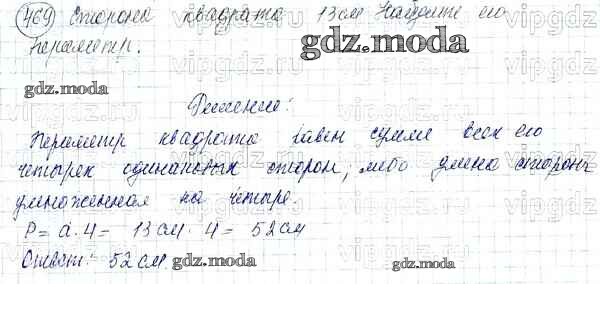 469 Сторона квадрата 13см Найдите его
периметр.
gdz.moda
gdz.moda
Решение:
Периметр квадрата равен сумме всех его
четырех одинаковых сторон, либо длина стороны
умноженная на четыре.
P = a·4 = 13см · 4 = 52см
Ответ: 52см
gdz.moda
gdz.moda